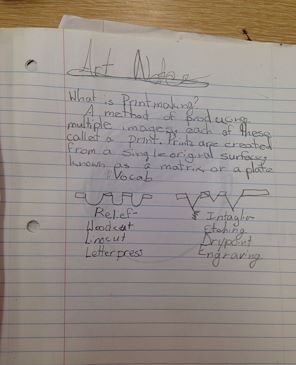 Art Notes
What is Printmaking?
A method of producing
multiple images, each of these
called a print. Prints are created
from a single original surface,
known as a matrix or a plate
Vocab
Relief- Intaglio-
Woodcut Etching
Linocut Drypoint
Letterpress Engraving